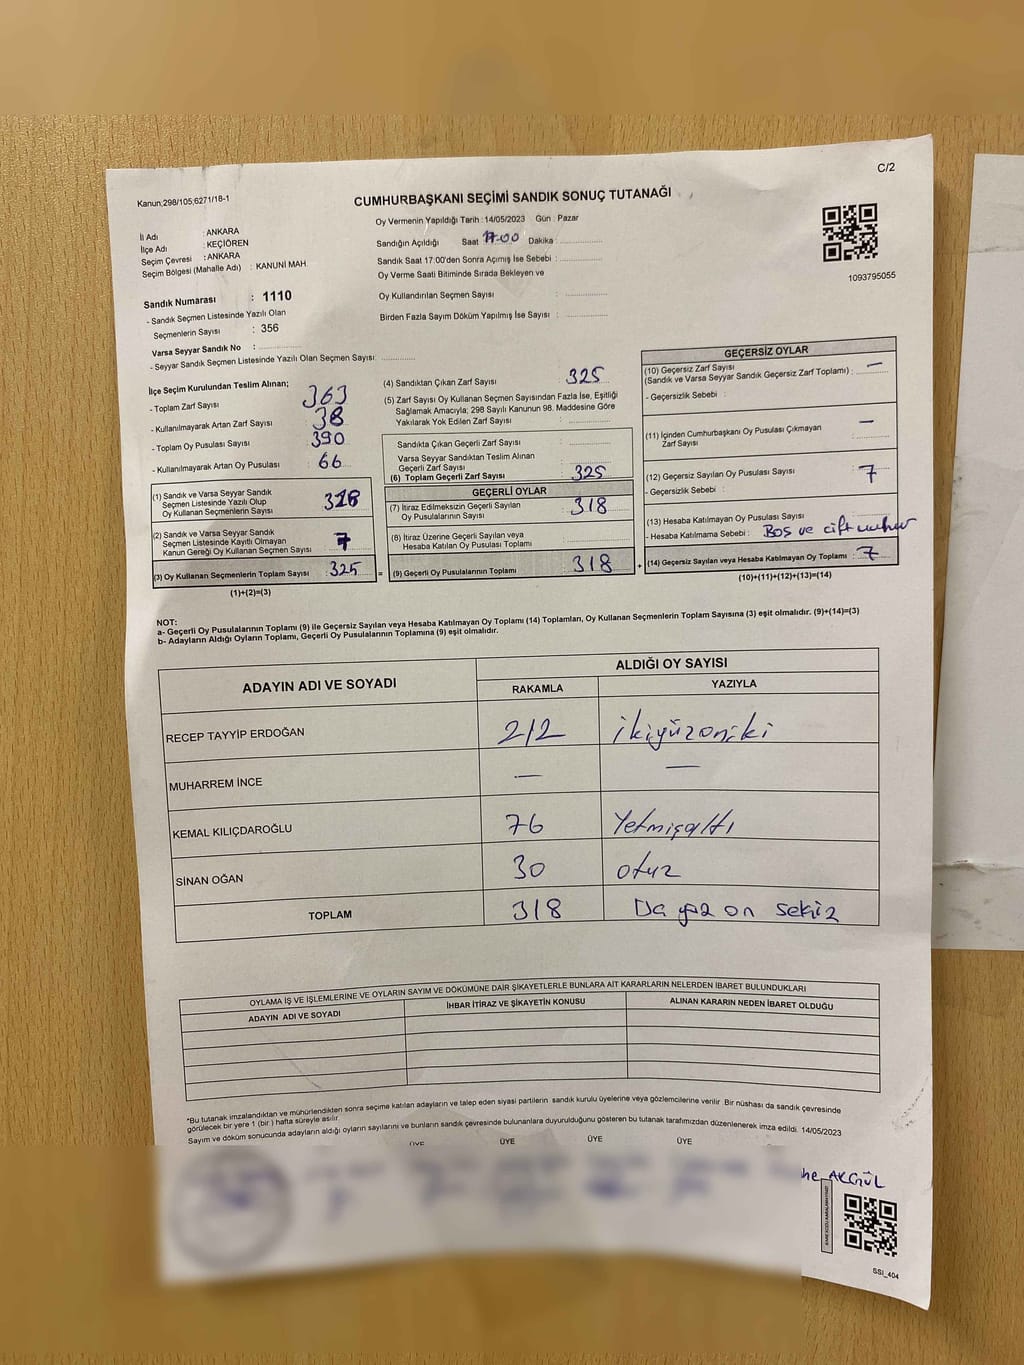 C/2
Kanun,298/105;6271/18-1
CUMHURBAŞKANI SEÇİMİ SANDIK SONUÇ TUTANAĞI
İl Adı : ANKARA
İlçe Adı : KEÇİÖREN
Seçim Çevresi : ANKARA
Seçim Bölgesi (Mahalle Adı) : KANUNİ MAH.
Sandık Numarası : 1110
- Sandık Seçmen Listesinde Yazılı Olan
Seçmenlerin Sayısı : 356
Varsa Seyyar Sandık No :
- Seyyar Sandık Seçmen Listesinde Yazılı Olan Seçmen Sayısı:
Oy Vermenin Yapıldığı Tarih : 14/05/2023 Gün : Pazar
Sandığın Açıldığı Saat 17.00 Dakika :
Sandık Saat 17:00'den Sonra Açımış İse Sebebi :
Oy Verme Saati Bitiminde Sırada Bekleyen ve
Oy Kullandırılan Seçmen Sayısı :
Birden Fazla Sayım Döküm Yapılmış İse Sayısı :
1093795055
İlçe Seçim Kurulundan Teslim Alınan;
- Toplam Zarf Sayısı : 363
- Kullanılmayarak Artan Zarf Sayısı : 38
- Toplam Oy Pusulası Sayısı : 390
- Kullanılmayarak Artan Oy Pusulası : 66
(1) Sandık ve Varsa Seyyar Sandık
Seçmen Listesinde Yazılı Olup
Oy Kullanan Seçmenlerin Sayısı : 318
(2) Sandık ve Varsa Seyyar Sandık
Seçmen Listesinde Kayıtlı Olmayan
Kanun Gereği Oy Kullanan Seçmen Sayısı : 7
(3) Oy Kullanan Seçmenlerin Toplam Sayısı : 325
(1)+(2)=(3)
(4) Sandıktan Çıkan Zarf Sayısı : 325
(5) Zarf Sayısı Oy Kullanan Seçmen Sayısından Fazla İse, Eşitliği
Sağlamak Amacıyla; 298 Sayılı Kanunun 98. Maddesine Göre
Yakılarak Yok Edilen Zarf Sayısı :
Sandıkta Çıkan Geçerli Zarf Sayısı :
Varsa Seyyar Sandıktan Teslim Alınan
Geçerli Zarf Sayısı :
(6) Toplam Geçerli Zarf Sayısı : 325
GEÇERLİ OYLAR
(7) İtiraz Edilmeksizin Geçerli Sayılan
Oy Pusulalarının Sayısı : 318
(8) İtiraz Üzerine Geçerli Sayılan veya
Hesaba Katılan Oy Pusulası Toplamı :
= (9) Geçerli Oy Pusulalarının Toplamı : 318
GEÇERSİZ OYLAR
(10) Geçersiz Zarf Sayısı
(Sandık ve Varsa Seyyar Sandık Geçersiz Zarf Toplamı) : —
- Geçersizlik Sebebi :
(11) İçinden Cumhurbaşkanı Oy Pusulası Çıkmayan
Zarf Sayısı : —
(12) Geçersiz Sayılan Oy Pusulası Sayısı : 7
- Geçersizlik Sebebi :
(13) Hesaba Katılmayan Oy Pusulası Sayısı
- Hesaba Katılmama Sebebi : Boş ve çift
+ (14) Geçersiz Sayılan veya Hesaba Katılmayan Oy Toplamı : 7
(10)+(11)+(12)+(13)=(14)
NOT:
a- Geçerli Oy Pusulalarının Toplamı (9) ile Geçersiz Sayılan veya Hesaba Katılmayan Oy Toplamı (14) Toplamları, Oy Kullanan Seçmenlerin Toplam Sayısına (3) eşit olmalıdır. (9)+(14)=(3)
b- Adayların Aldığı Oyların Toplamı, Geçerli Oy Pusulalarının Toplamına (9) eşit olmalıdır.
ADAYIN ADI VE SOYADI
ALDIĞI OY SAYISI
RAKAMLA YAZIYLA
RECEP TAYYİP ERDOĞAN 212 ikiyüzoniki
MUHARREM İNCE — —
KEMAL KILIÇDAROĞLU 76 Yetmişaltı
SİNAN OĞAN 30 otuz
TOPLAM 318 on sekiz
OYLAMA İŞ VE İŞLEMLERİNE VE OYLARIN SAYIM VE DÖKÜMÜNE DAİR ŞİKAYETLERLE BUNLARA AİT KARARLARIN NELERDEN İBARET BULUNDUKLARI
ADAYIN ADI VE SOYADI İHBAR İTİRAZ VE ŞİKAYETİN KONUSU ALINAN KARARIN NEDEN İBARET OLDUĞU
*Bu tutanak imzalandıktan ve mühürlendikten sonra seçime katılan adayların ve talep eden siyasi partilerin sandık kurulu üyelerine veya gözlemcilerine verilir. Bir nüshası da sandık çevresinde
görülecek bir yere 1 (bir ) hafta süreyle asılır.
Sayım ve döküm sonucunda adayların aldığı oyların sayılarını ve bunların sandık çevresinde bulunanlara duyurulduğunu gösteren bu tutanak tarafımızdan düzenlenerek imza edildi. 14/05/2023
ÜYE ÜYE ÜYE ÜYE
he AKGÜL
SSI_404